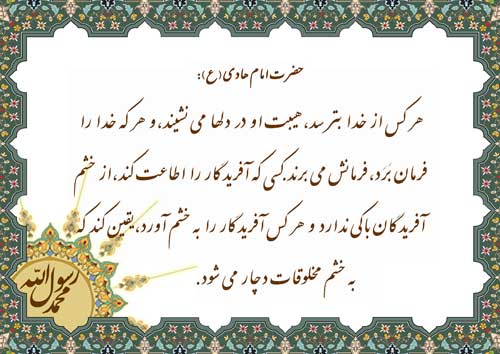 حضرت امام هادی (ع):
هرکس از خدا بترسد، هیبت او در دلها می نشیند، و هرکه خدا را
فرمان بَرَد، فرمانش می برند. کسی که آفریدگار را اطاعت کند، از خشم
آفریدگان باکی ندارد و هرکس آفریدگار را به خشم آورد، یقین کند که
به خشم مخلوقات دچار می شود.
محمد رسول الله